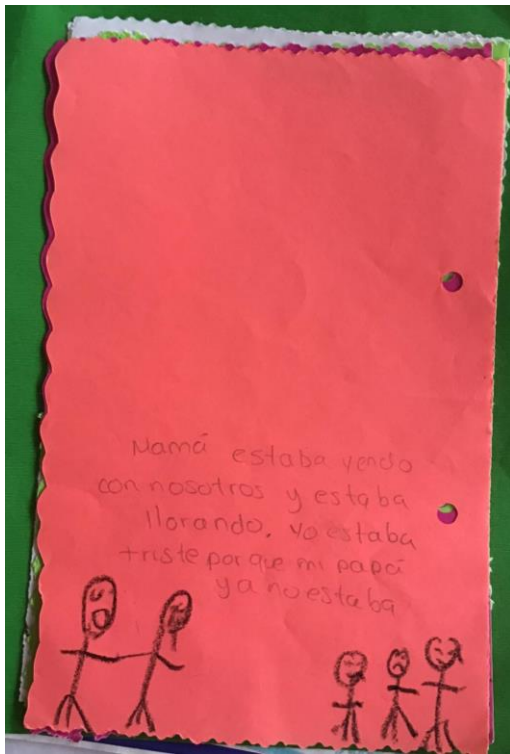 Mamá estaba yendo
con nosotros y estaba
llorando. Yo estaba
triste porque mi papá
ya no estaba